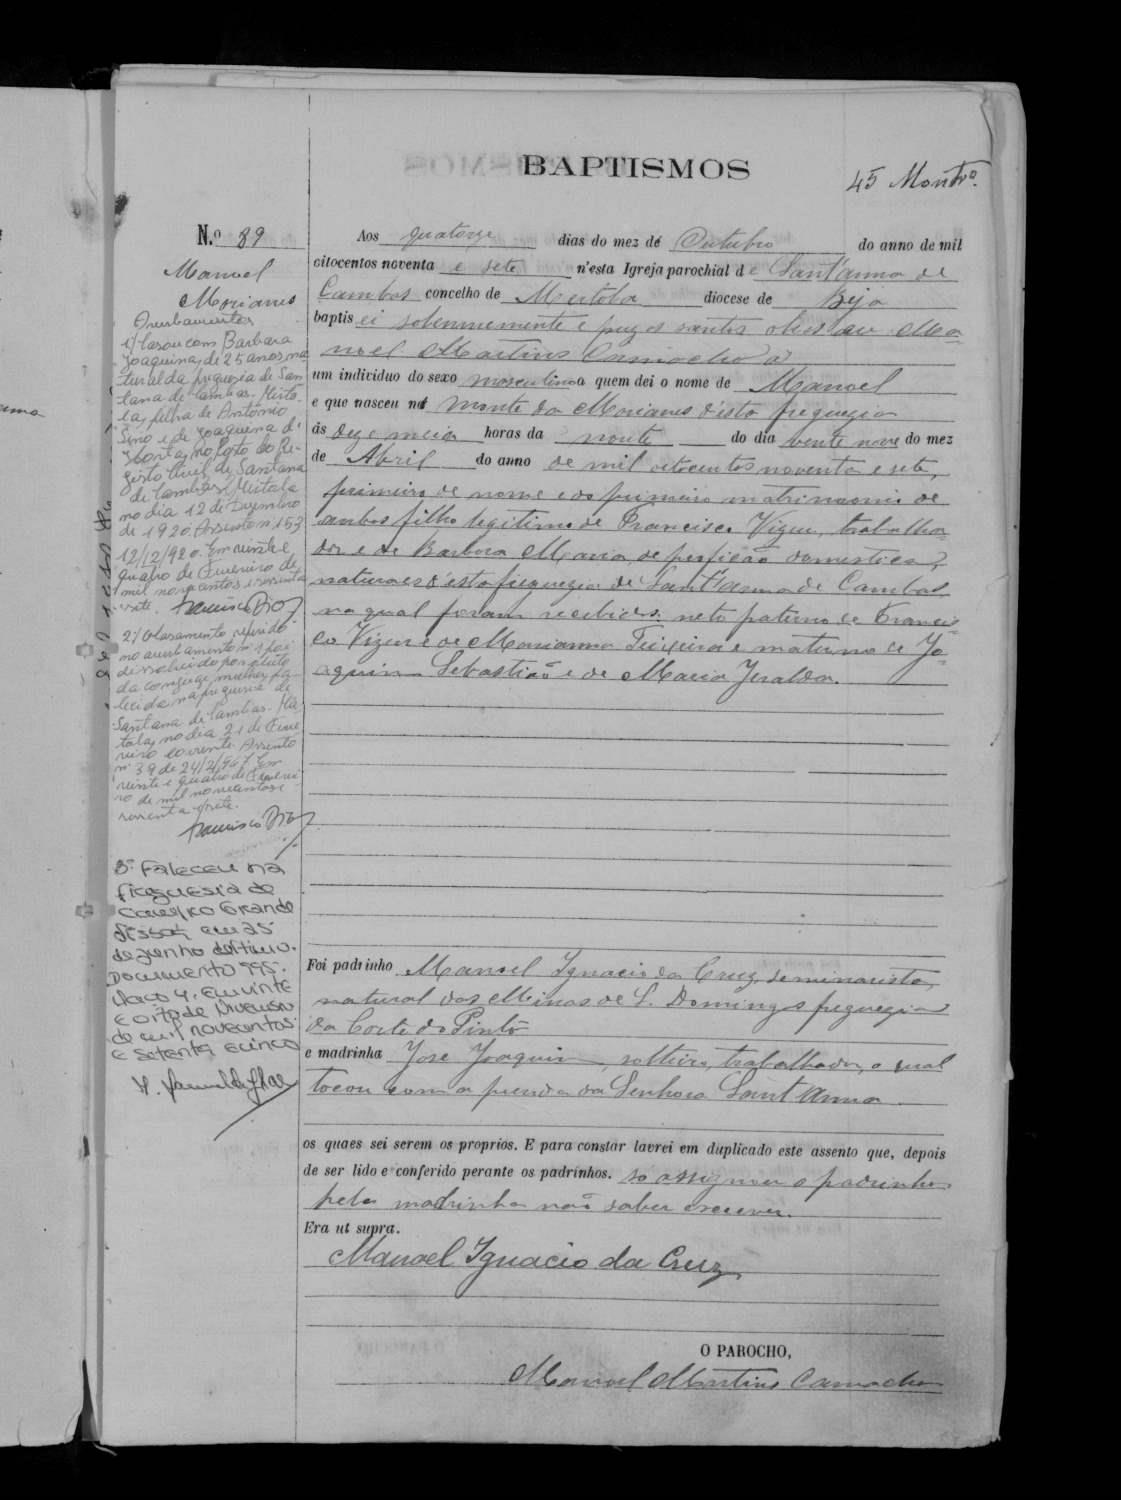 BAPTISMOS
45 Montrº.
N.º 89
Manoel
Morianes
Averbamentos
1º/ Casou com Barbara
Joaquina, de 25 anos, na
tural da freguezia de San
tana de Cambas, Mirto
la, filha de António
e de Joaquina d'
Horta, no Posto do Re-
gisto Civil de Santana
de Cambas, Mertola
no dia 12 de Dezembro
de 1920. Assento nº 153
12/12/920. Em vinte e
quatro de Fevereiro de
mil novecentos e sessenta
e sete. Francisco
2º/ O casamento referido
no averbamento nº 1 foi
dissolvido por óbito
da conjuge mulher, fa-
lecida na freguesia de
Santana de Cambas, Mér
tola, no dia 21 de Feve
reiro corrente. Assento
nº 39 de 24/2/967. Em
vinte e quatro de Feverei
ro de mil novecentos e
sessenta e sete.
Francisco
3º Faleceu na
freguesia de
Campo Grande
Lisboa, em 25
de Junho último.
Documento 995.
Maço 4. Em vinte
e oito de
de mil novecentos
e setenta e cinco
Aos quatorze dias do mez de Outubro do anno de mil
oitocentos noventa e sete n'esta Igreja parochial de Sant'anna de
Cambas concelho de Mertola diocese de Beja
baptisei solemnemente e puz os santos oleos eu Ma
noel Martins Camacho a
um individuo do sexo masculino a quem dei o nome de Manoel
e que nasceu no monte da Morianes d'esta freguezia
ás dez e meia horas da noute do dia vente nove do mez
de Abril do anno de mil oitocentos noventa e sete,
primeiro de nome e do primeiro matrimonio de
ambos filho legitimo de Francisco Vizeu, trabalha
dor e de Barbora Maria, de profição domestica,
naturaes d'esta freguezia de Sant'anna de Cambas
na qual foram recebidos: neto paterno de Francis-
co Vizeu e de Marianna Teixeira e materno de Jo-
aquim Sebastião e de Maria Jeralda.
Foi padrinho Manoel Ignacio da Cruz, seminarista,
natural das Minas de S. Domingos freguezia
da Corte do Pinto
e madrinha Jose Joaquim, solteiro, trabalhador, o qual
tocou com a prenda da Senhora Sant'Anna
os quaes sei serem os proprios. E para constar lavrei em duplicado este assento que, depois
de ser lido e conferido perante os padrinhos. so assignou o padrinho
pela madrinha não saber escrever.
Era ut supra.
Manoel Ignacio da Cruz
O PAROCHO,
Manoel Martins Camacho